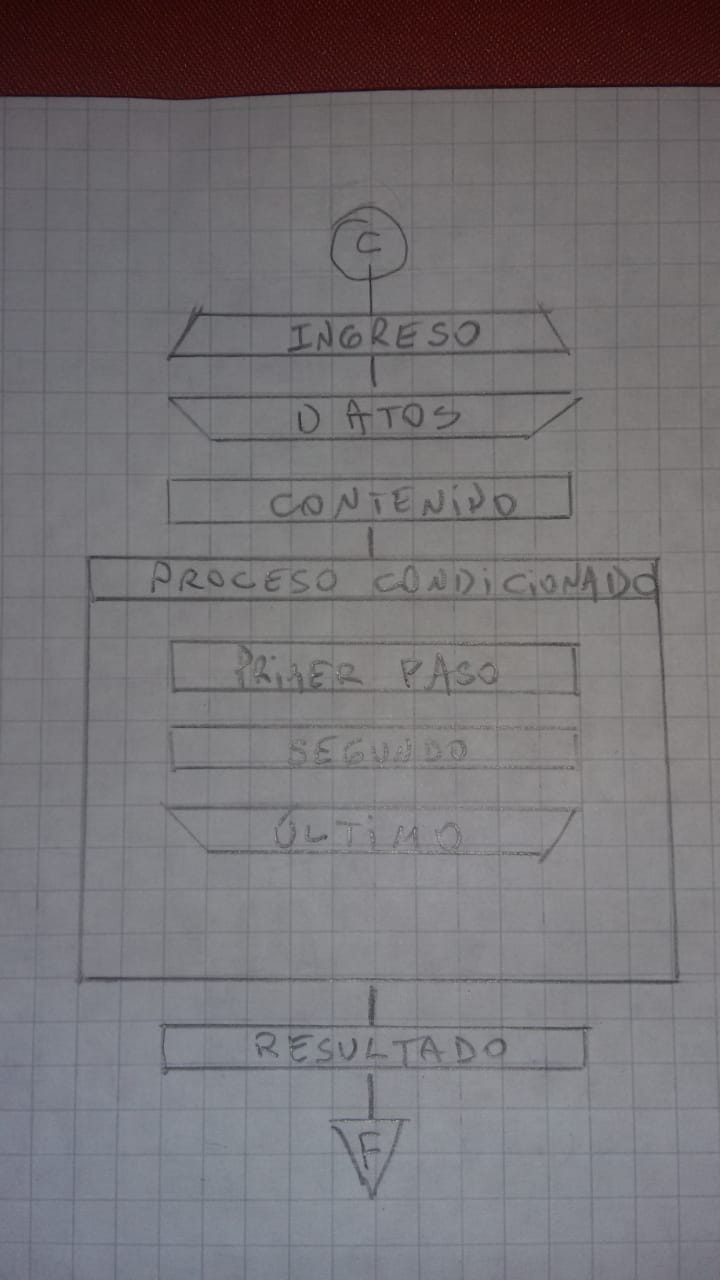 C
INGRESO
DATOS
CONTENIDO
PROCESO CONDICIONADO
PRIMER PASO
SEGUNDO
ÚLTIMO
RESULTADO
F